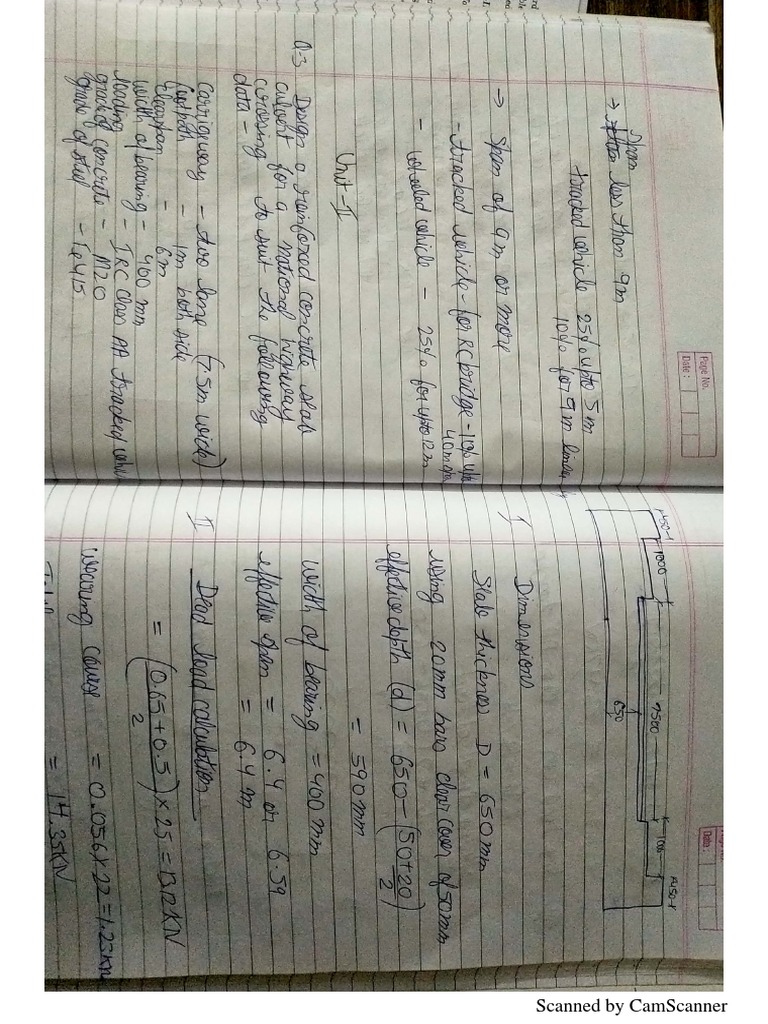 Page No.
Date :
Span
→ less than 9m
tracked vehicle 25% upto 5m
10% for 9m
→ Span of 9m or more
- tracked vehicle - for RC bridge - 10% upto
40m span
- wheeled vehicle - 25% for upto 12m
Unit-II
Q-3 Design a reinforced concrete slab
culvert for a national highway
crossing to suit the following
data -
Carrigway - two lane (7.5m wide)
footpath - 1m both side
clearspan - 6m
width of bearing - 400 mm
loading - IRC class AA tracked vehicle
grade of concrete - M20
grade of steel - Fe415
Date :
450
1000
7500
1000
450
650
I Dimensions
Slab thickness D = 650mm
using 20mm bars clear cover of 50mm
effective depth (d) = 650 - (50+20/2)
= 590mm
width of bearing = 400mm
effective span = 6.4 or 6.59
= 6.4m
II Dead load calculation
= (0.65+0.5/2) × 25 = 13.12KN
wearing course = 0.056×22 = 1.23KN
Total = 14.35KN
Scanned by CamScanner